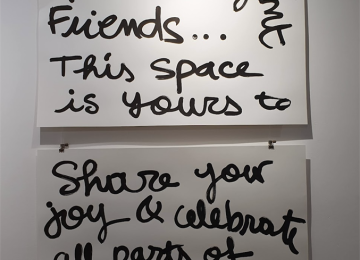 Friends...
This space
is yours to
Share your
joy & celebrate
all parts of